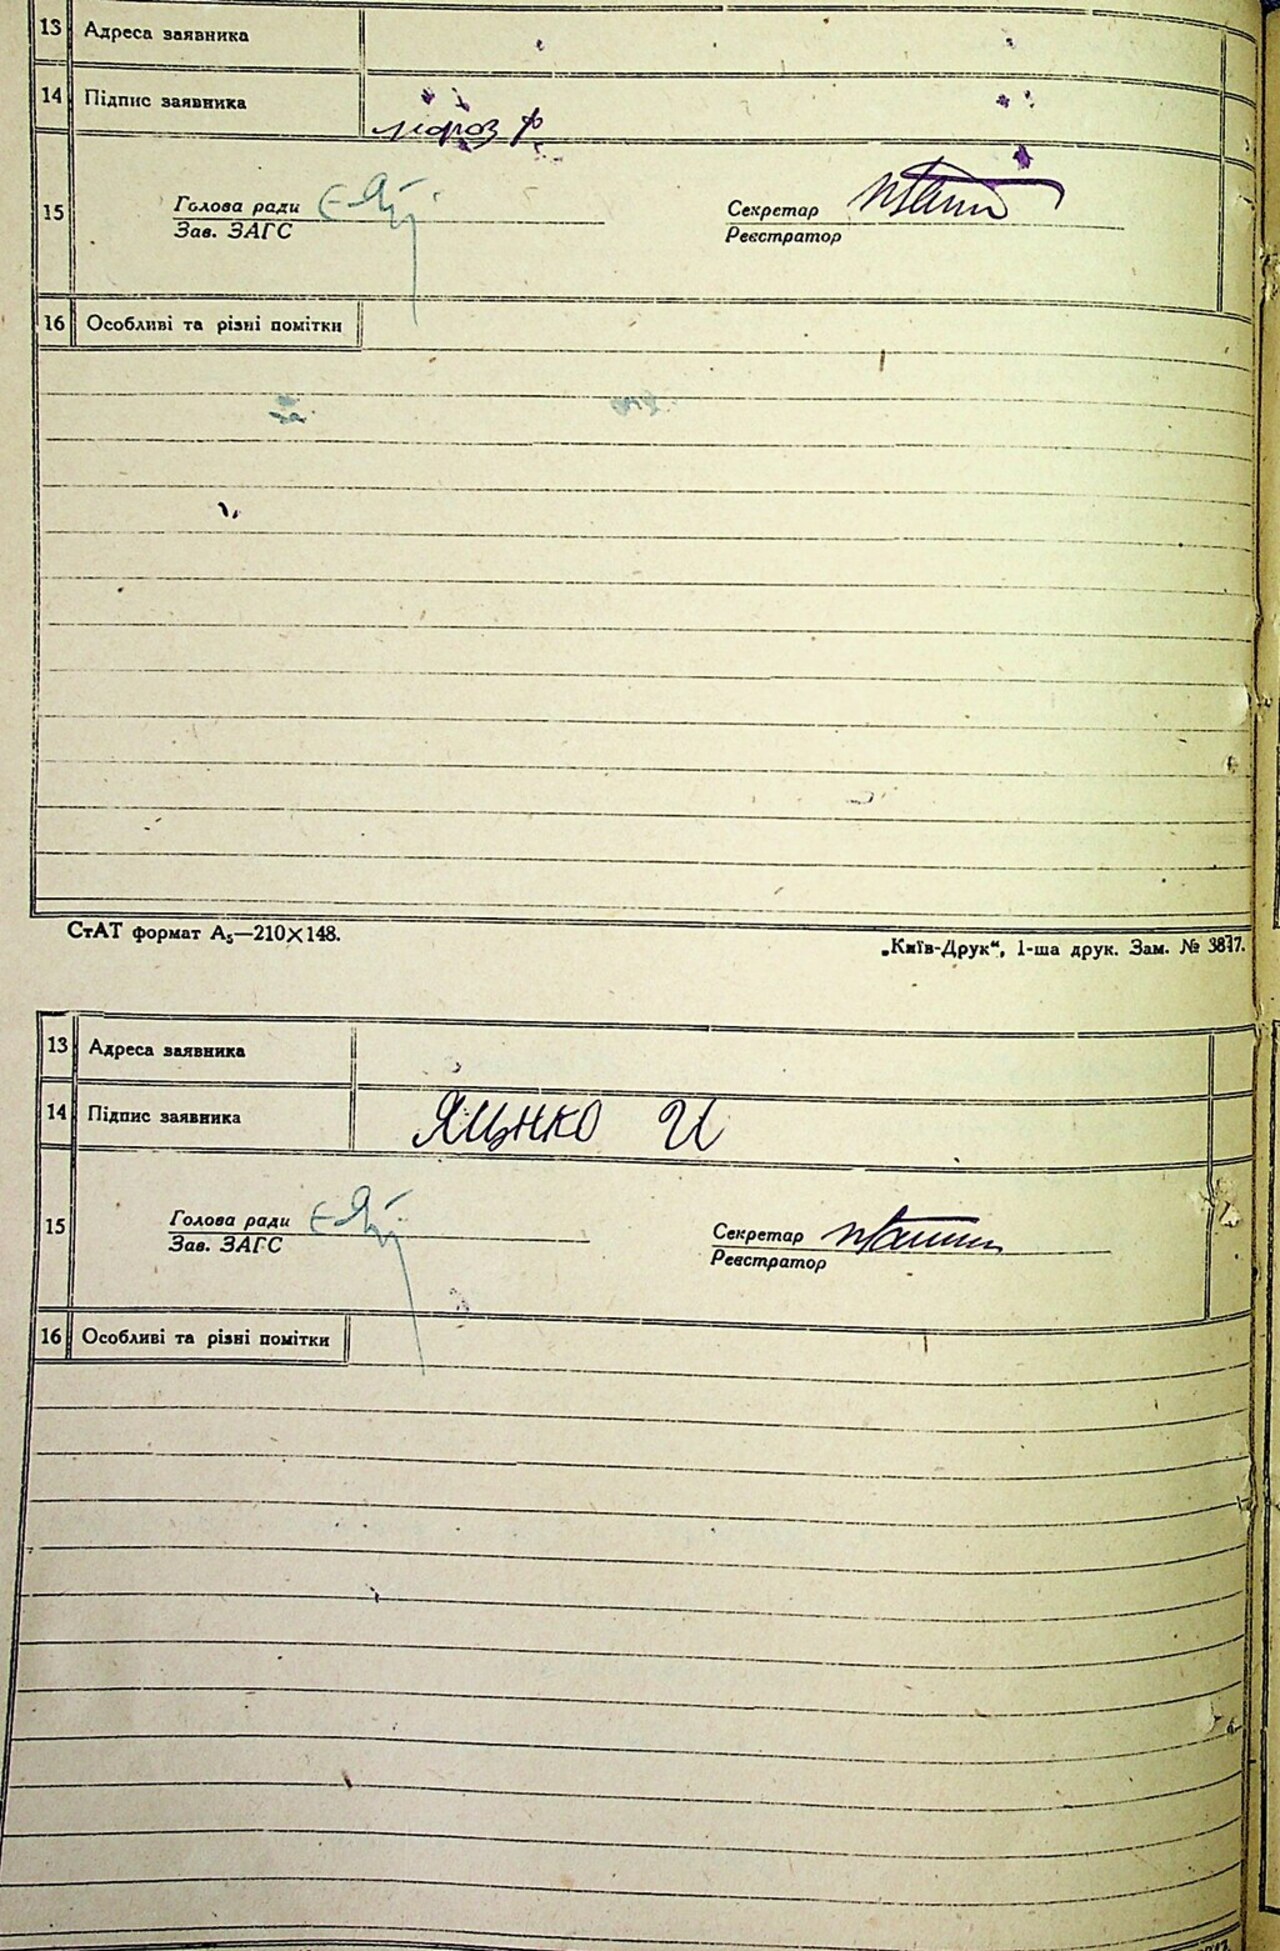 13 Адреса заявника
14 Підпис заявника мороз Ф
15 Голова ради Секретар
Зав. ЗАГС Реєстратор
16 Особливі та різні помітки
СтАТ формат А₅—210×148. „Київ-Друк“, 1-ша друк. Зам. № 3877.
13 Адреса заявника
14 Підпис заявника Яцнко И
15 Голова ради Секретар
Зав. ЗАГС Реєстратор
16 Особливі та різні помітки